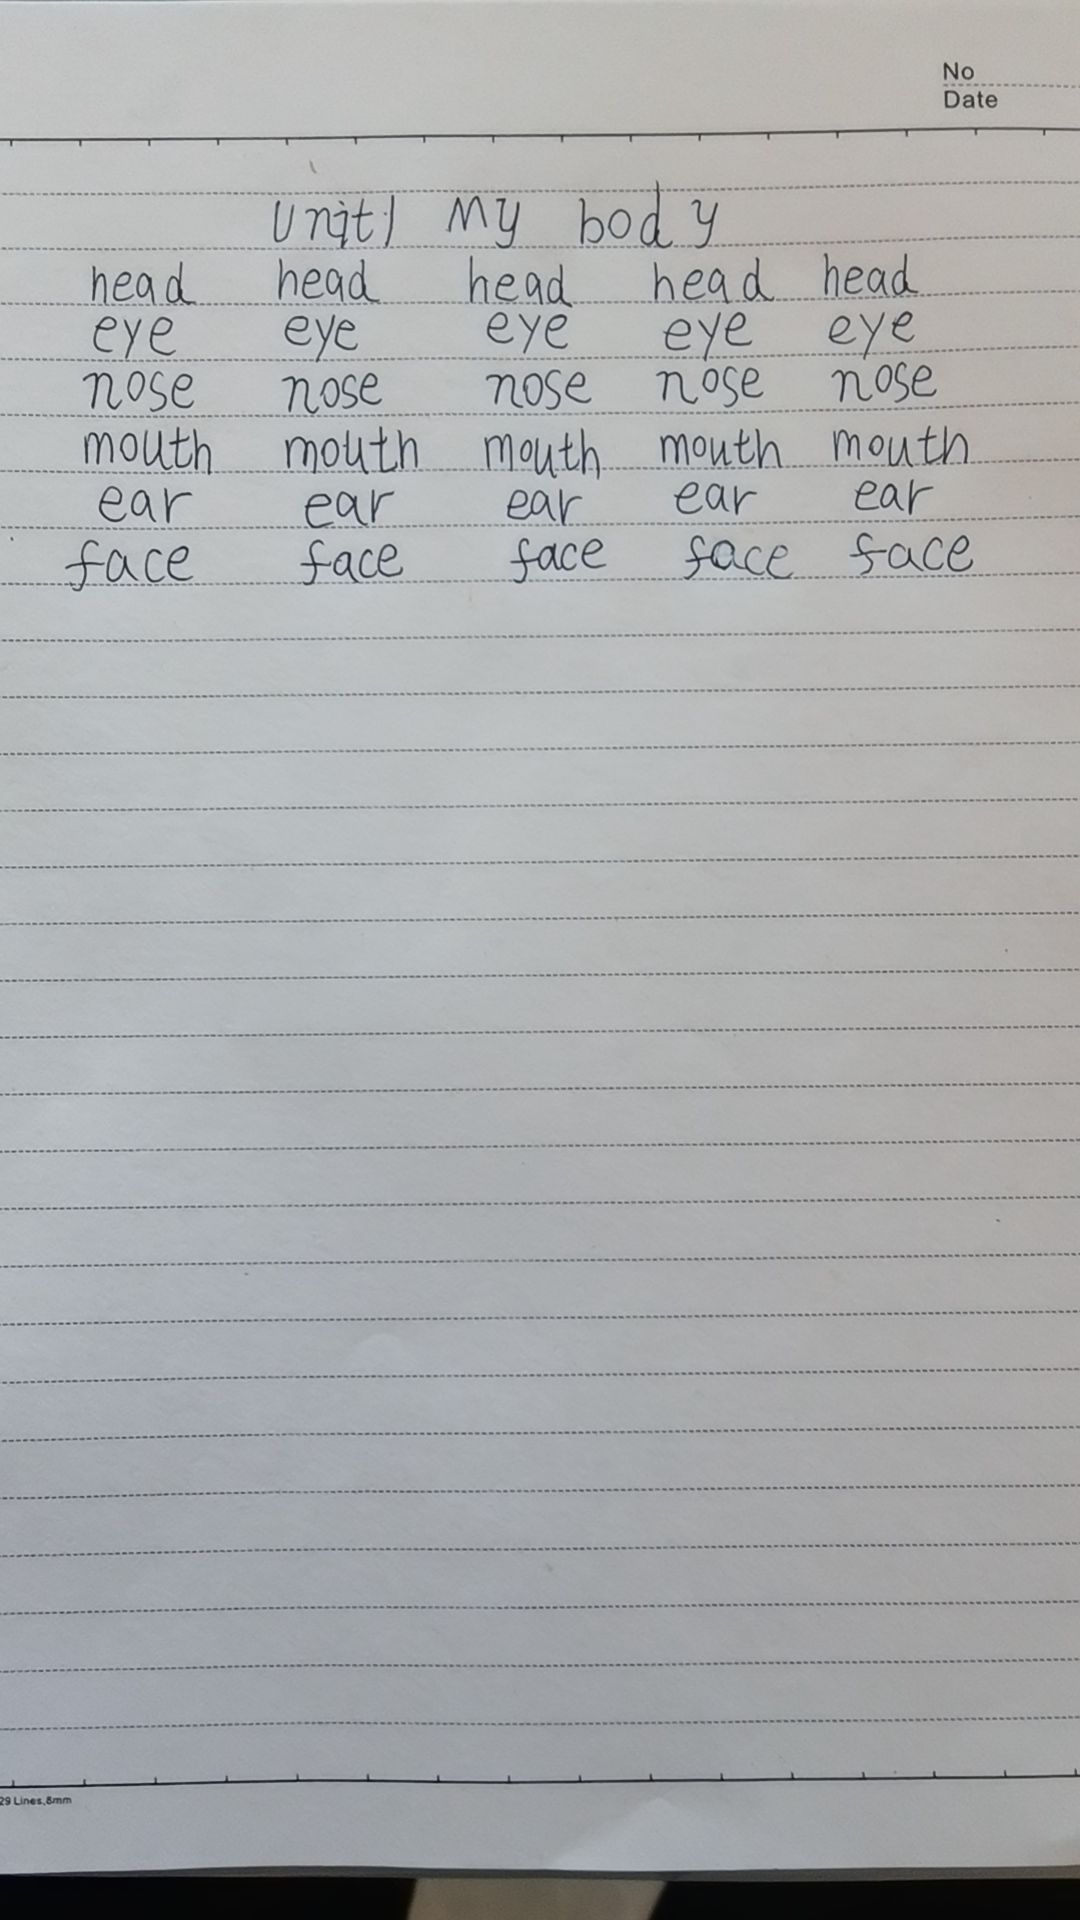 No
Date
Unit1 My body
head head head head head
eye eye eye eye eye
nose nose nose nose nose
mouth mouth mouth mouth mouth
ear ear ear ear ear
face face face face face
29 Lines,8mm